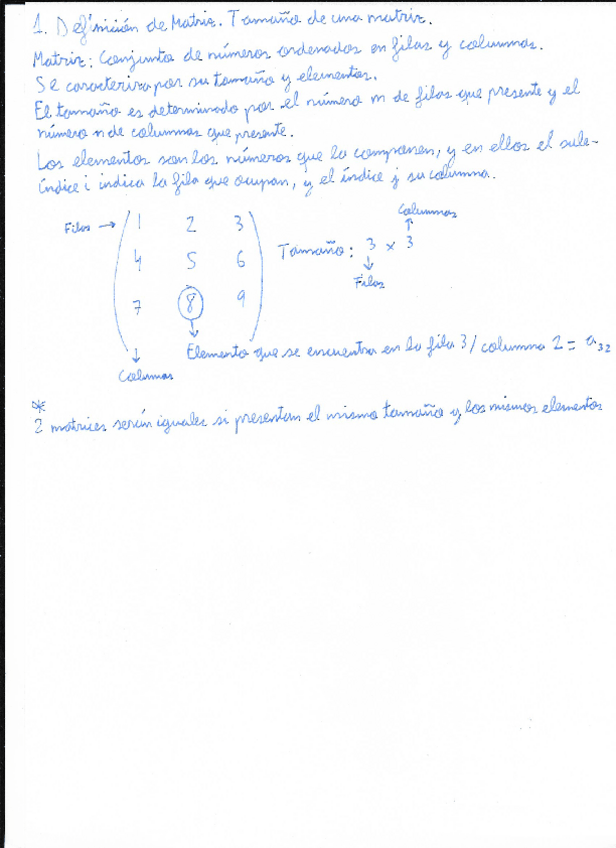 1. Definición de Matriz. Tamaño de una matriz.
Matriz: Conjunto de números ordenados en filas y columnas.
Se caracteriza por su tamaño y elementos.
El tamaño es determinado por el número m de filas que presente y el
número n de columnas que presente.
Los elementos son los números que la componen, y en ellos el sub-
índice i indica la fila que ocupan, y el índice j su columna.
Columnas
Filas → 1 2 3
Tamaño: 3 x 3
4 5 6
Filas
7 8 9
Elemento que se encuentra en la fila 3 / columna 2 = a32
Columnas
*
2 matrices serán iguales si presentan el mismo tamaño y los mismos elementos